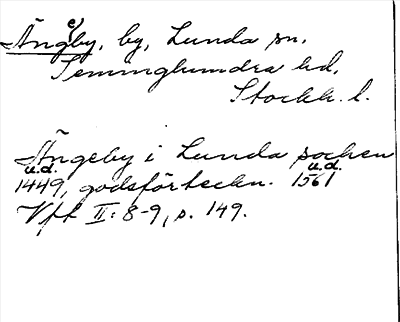 Ängeby, by, Lunda sn.
Seminghundra hd.
Stockh. l.
Ängeby i Lunda socken
u.d. u.d.
1449, godsförteckn. 1561
Vft II: 8-9, s. 149.